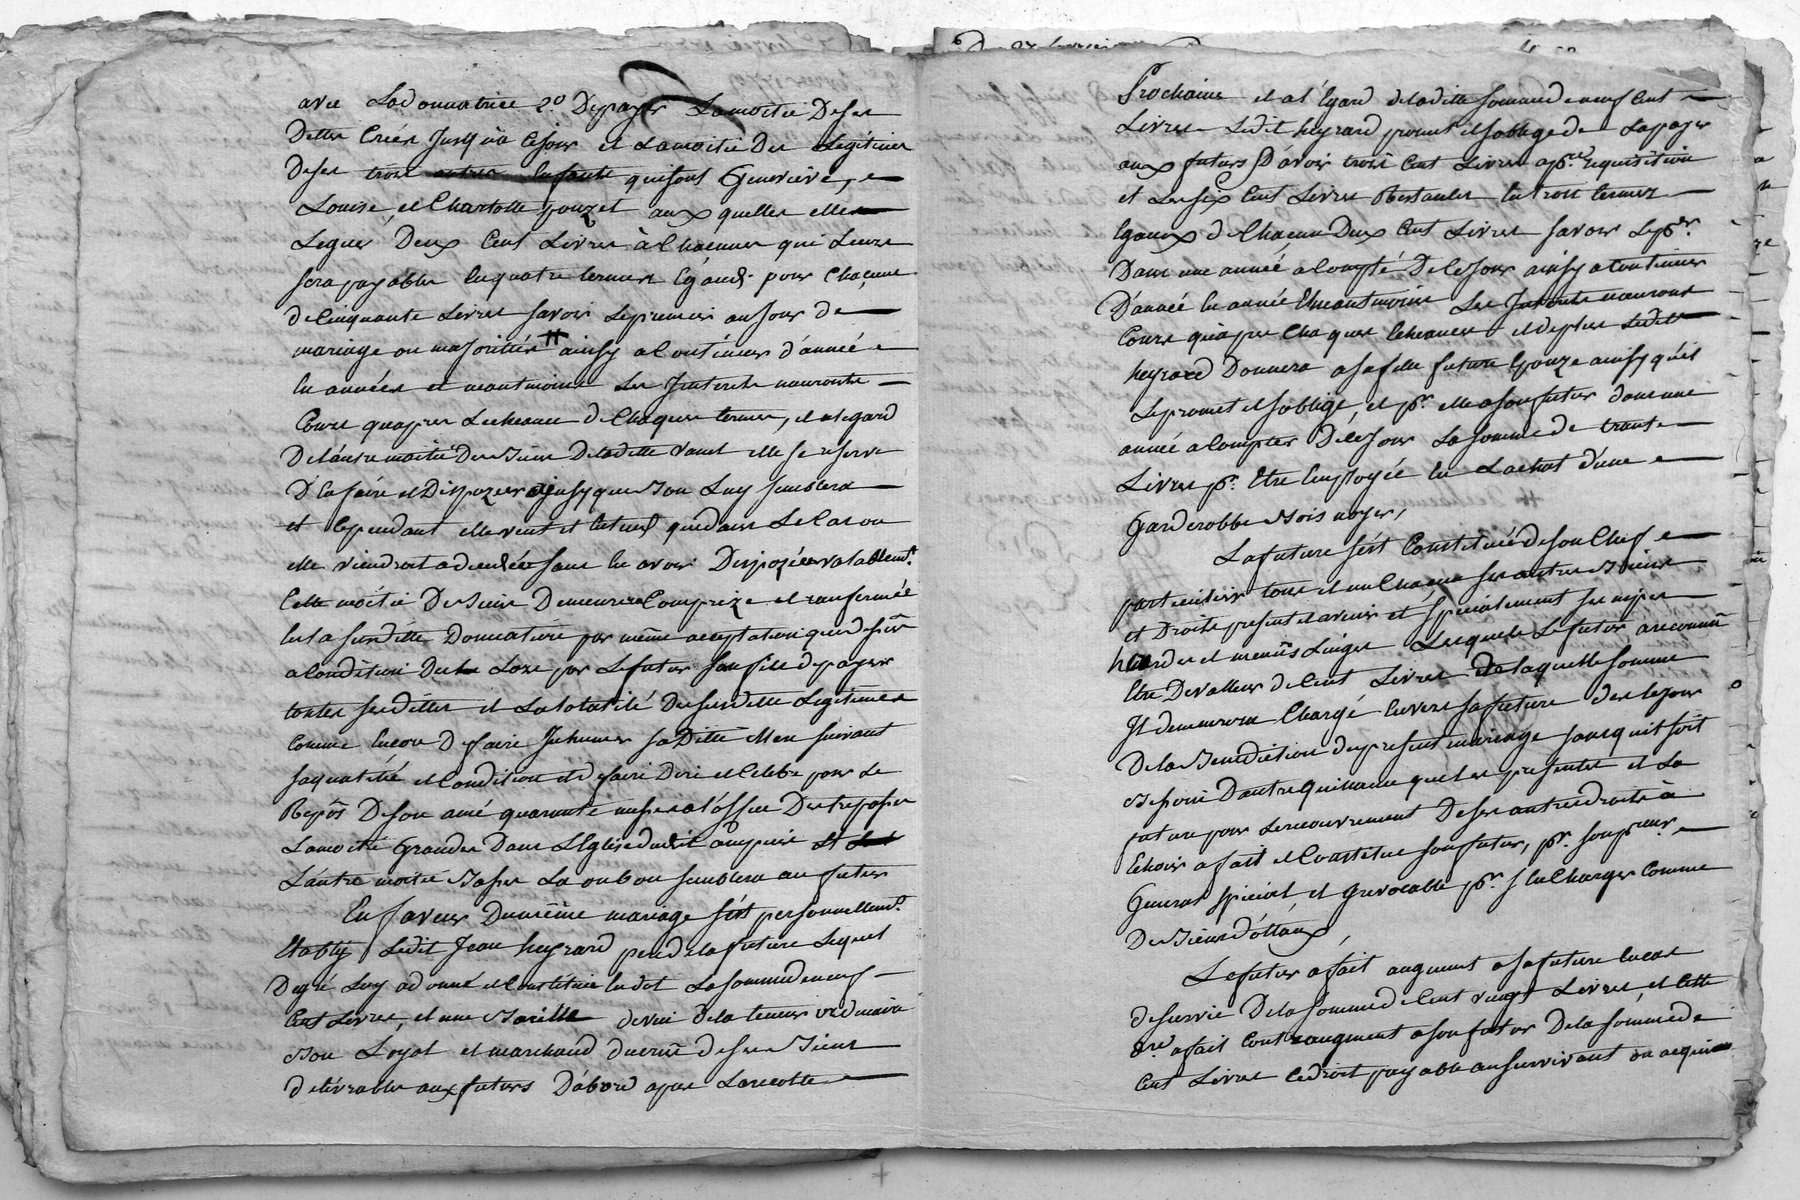 avec Ladonnatrice 2.º De payer Lamoitié Deses
Dettes Créés Jusqu'à cejour et Lamoitié Des Legitimes
Deses trois autres Enfants quisont Geneviève, e
Louise, et Charlotte pouzet aux quelles elle a
Legué Deux Cent Livres à Chacunes qui Leurs
sera payables en quatre termes Egaux pour Chacune
de Cinquante Livres savoir Lepremier au Jour de
mariage ou majorittée # ainsy a Continuer d'année e
En années et neantmoins Les Jnterets nauronts
Cours quapres Lecheance de Chaques termes, et a legard
De Lautre moitié Des Biens De laditte Vanel elle se reserve
D'En faire et Dispozer ainsy que Bon Luy semblera
et Cependant elle veut et Entend que dans Le Cas ou
elle viendroit a deceder sans En avoir Dispozées valablemt.
Cette moitié De Biens Demeurera Comprize et ranfermée
En la susditte Donnation par même acceptation que dessus
a Condition Dans Ce Cas par Le futur son fils de payer
touttes ses dettes et La totalité Des susdittes Legitimes
Comme Encore De faire Jnhumer sa Ditte Mere suivant
saqualité et Condition et de faire Dire et Celebrer pour Le
Repôs De son ame quarante messes a l'issue Des trepasses
Lamoitié Grandes Dans L'Eglise dudit ampuis Et
L'autre moitié Basses La ou bon semblera au futur
En faveur Dumême mariage s'est personnellemt.
Etably Ledit Jean heyrard pere de la future Lequel
De gré Luy a donné et Constitué En dot La somme de neuf
Cent Livres, et une Barille de vin de la teneur ordinaire
Bon Loyal et marchand du crû de ses Biens
delivrables aux futurs D'abord apres La recolte
Prochaine et a l'Egard de ladite somme de neuf Cent
Livres Ledit heyrard promet et s'oblige de La payer
aux futurs Savoir trois Cent Livres a pre. requisition
et Les six Cent Livres Restantes En trois termes
Egaux de Chacun Deux Cent Livres savoir Le per.
Dans une année a Compté De Ce Jour ainsy a Continuer
D'année En année Et neantmoins Les Jnterets nauronts
Cours qu'apres Chaques Echeances et de plus Ledit
heyrard Donnera a sa fille future Epouze ainsy qu'il
Le promet et s'obblige, et pr. elle a son futur dans une
année a Compter De Ce Jour La somme de trante
Livres pr. Etre Employée En L'achat d'une e
Garderobbe Bois noyer,
La future s'est Constituée de son Chef e
particulier tous et un Chacun ses autres Biens
et Droits present et avenir et specialement ses nipes
hardes et menüs Linges Lesquels Le futur a reconnû
Etre De valleur de Cent Livres de laquelle somme
Jl demeurera Chargé Envers sa future des le jour
De la Benediction du present mariage sans qu'il soit
Besoin D'autre quittance que les presentes et La
future pour Le recouvrement De ses autres droits à
Echoir a fait et Constitué son futur, pr. son preur.
General special, et Jrrevocable pr. s'En Charger Comme
De Biens dottaux,
Le futur a fait augment a sa future En cas
de survie De la somme de Cent vingt Livres, et Cette
dre. a fait Contraugment a son futur De la somme de
Cent Livres Ledroit payable au survivant ou acquis